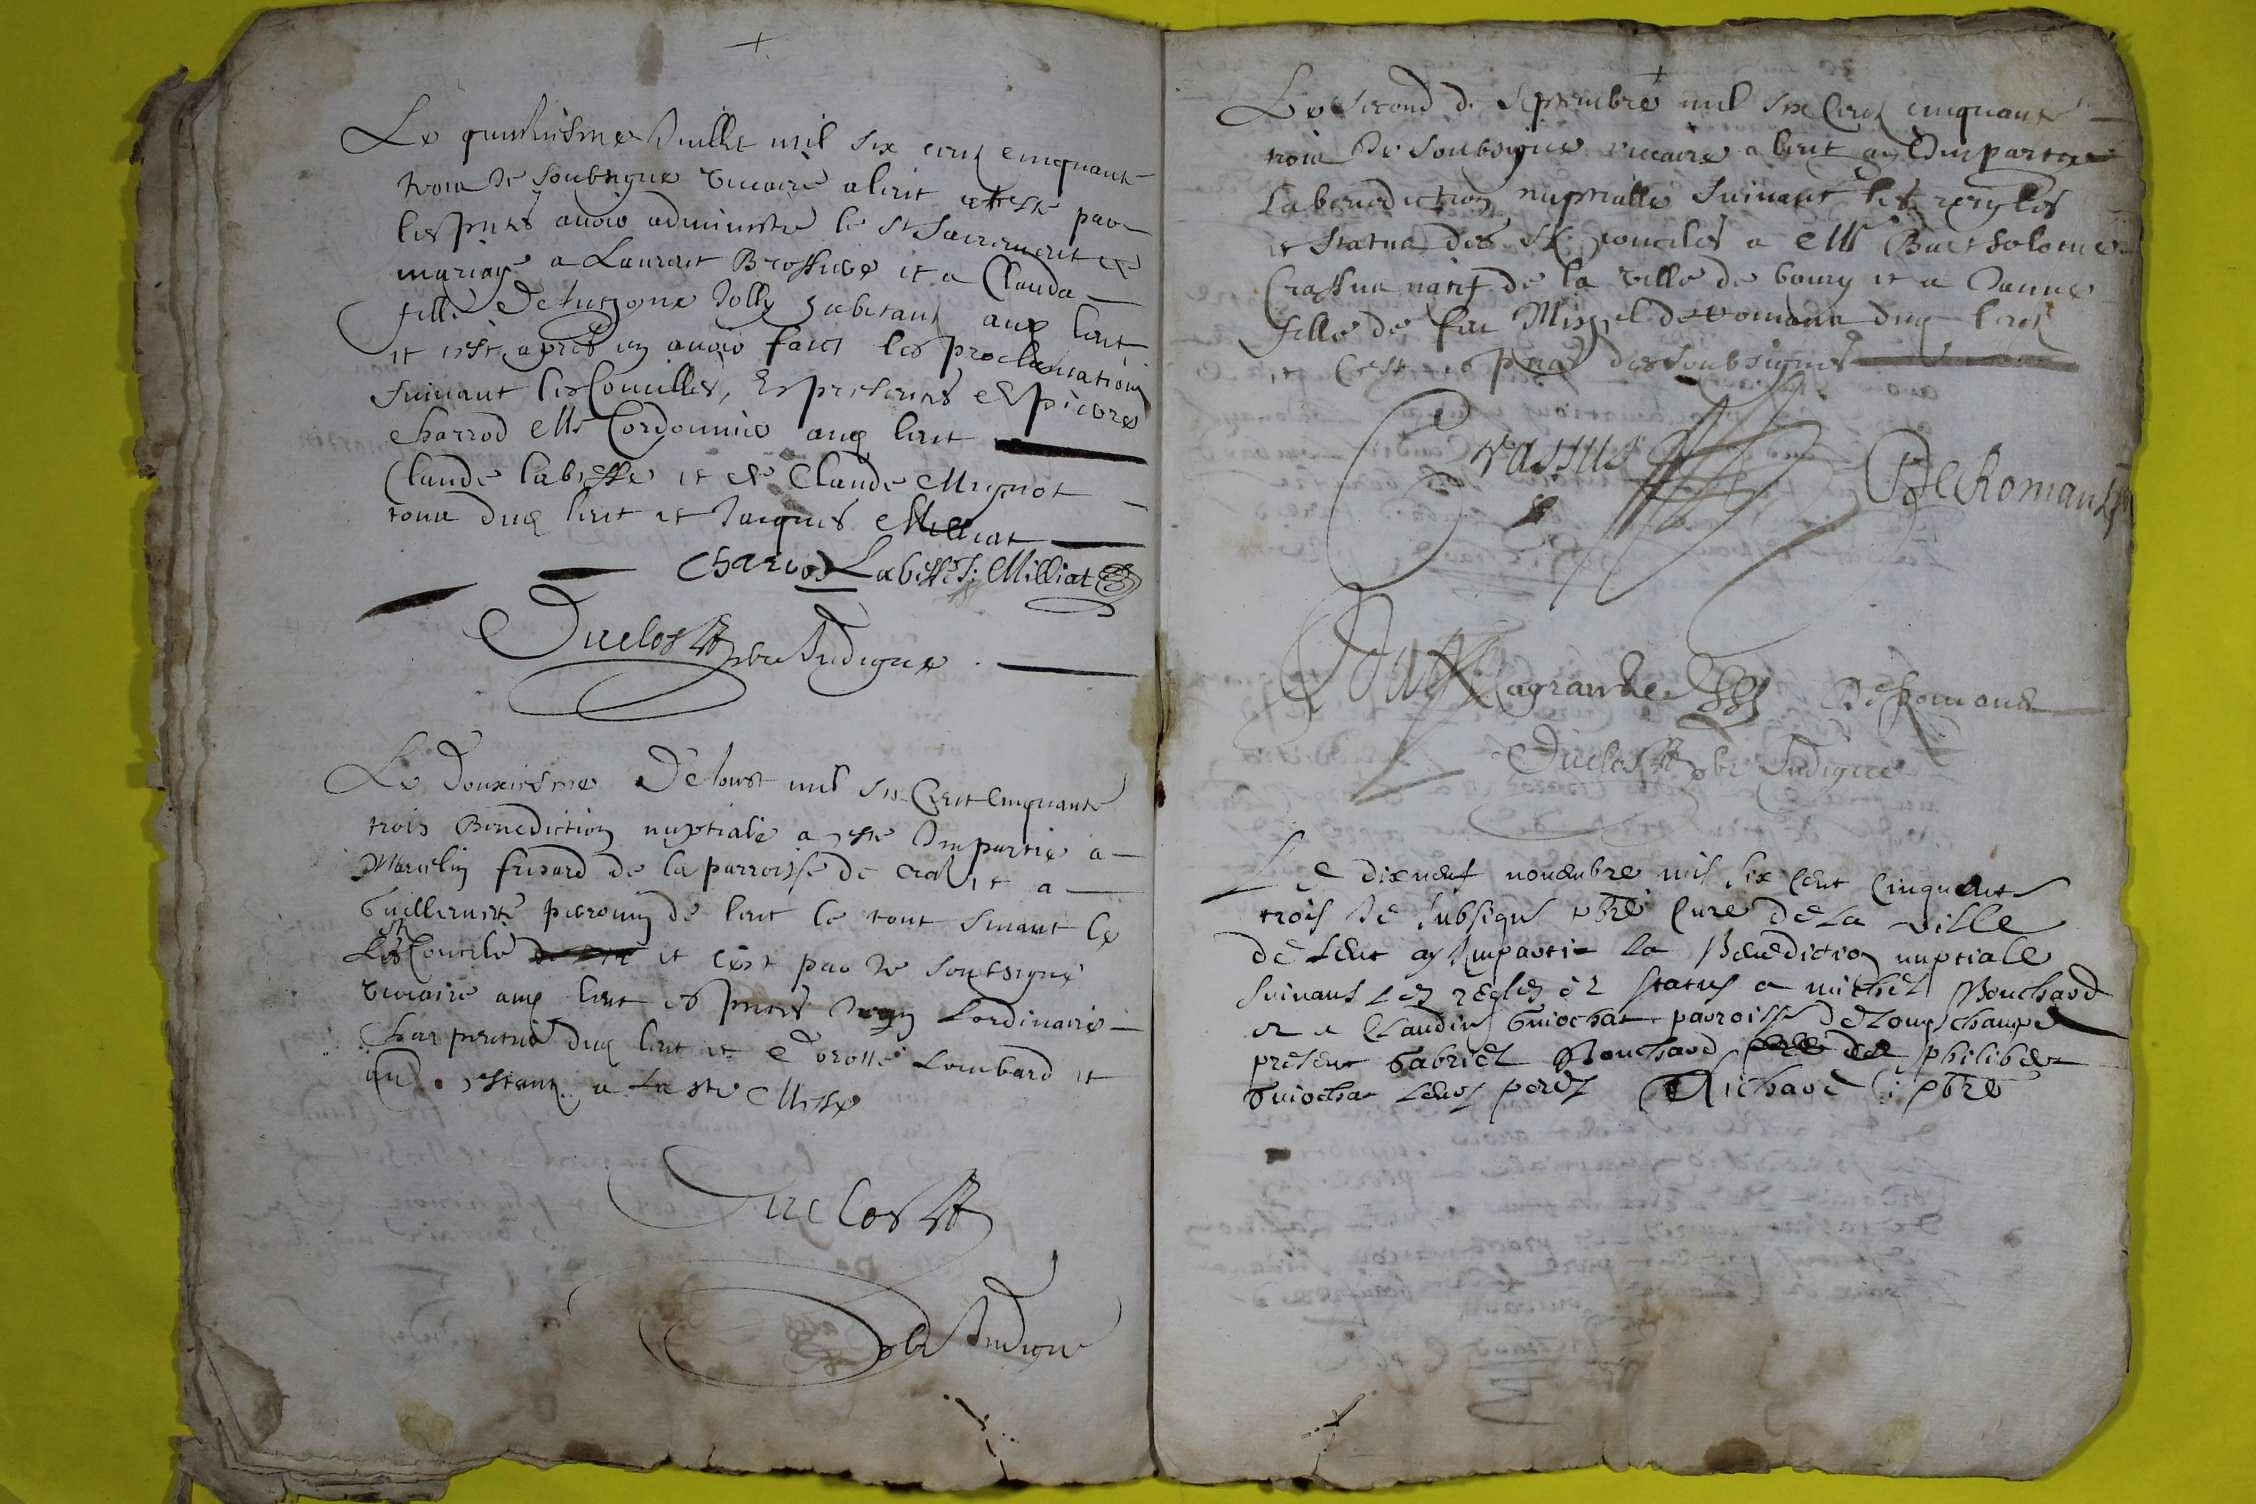 Le quinsiesme Juillet mil six cent cinquante
trois Je soubsigne vicaire a lent atteste par
les pntes avoir administre le st Sacrement de
mariage a Laurent et a Clauda
fille De Jolly habitant aud lent
et c'est apres en avoir faict les proclamations
suivant les Concilles, Es presences de pierre
charrod Mre Cordonnier aud lent
Claude labesse et de Claude Mignot
tous dud lent et Jacques Milliat
Charrod Labesse J. Milliat
Duclos pbre Indigne
Le Douxiesme D'aoust mil six Cent Cinquante
trois Benediction nuptiale a este Impartie a
Marcelin frisard de la parroisse de et a
Guillermette peronin de lent le tout suivant le
st Concile et c'est par Je soubsigne
vicaire aud lent es pntes Lordinaire
Charpentier dud lent et Lombard et
estant a La ste Messe
Duclos
pbre Indigne
Le second de septembre mil six Cent cinquante
trois Je soubsigne vicaire a lent ay Imparty
La benediction nuptialle suivant les reigles
et statuz des st conciles a Mre Bartholome
Crassus natif de la ville de bourg et a Janne
fille de feu Michel de romans dud lent
et c'est es pnces des soubsignes
Crassus DeRomans
Lagrange DeRomans
Duclos pbre Indigne
Le dixneuf novembre mil six cent cinquente
trois Je subsigne pbre Cure de La ville
de Lent ay Imparti La Benediction nuptiale
suivans Les regles et statuts a michel Bouchard
et a Claudine Guiochat parroisse de Longchamps
present Gabriel Bouchard philibert
Guiochat Leurs peres Richard pbre